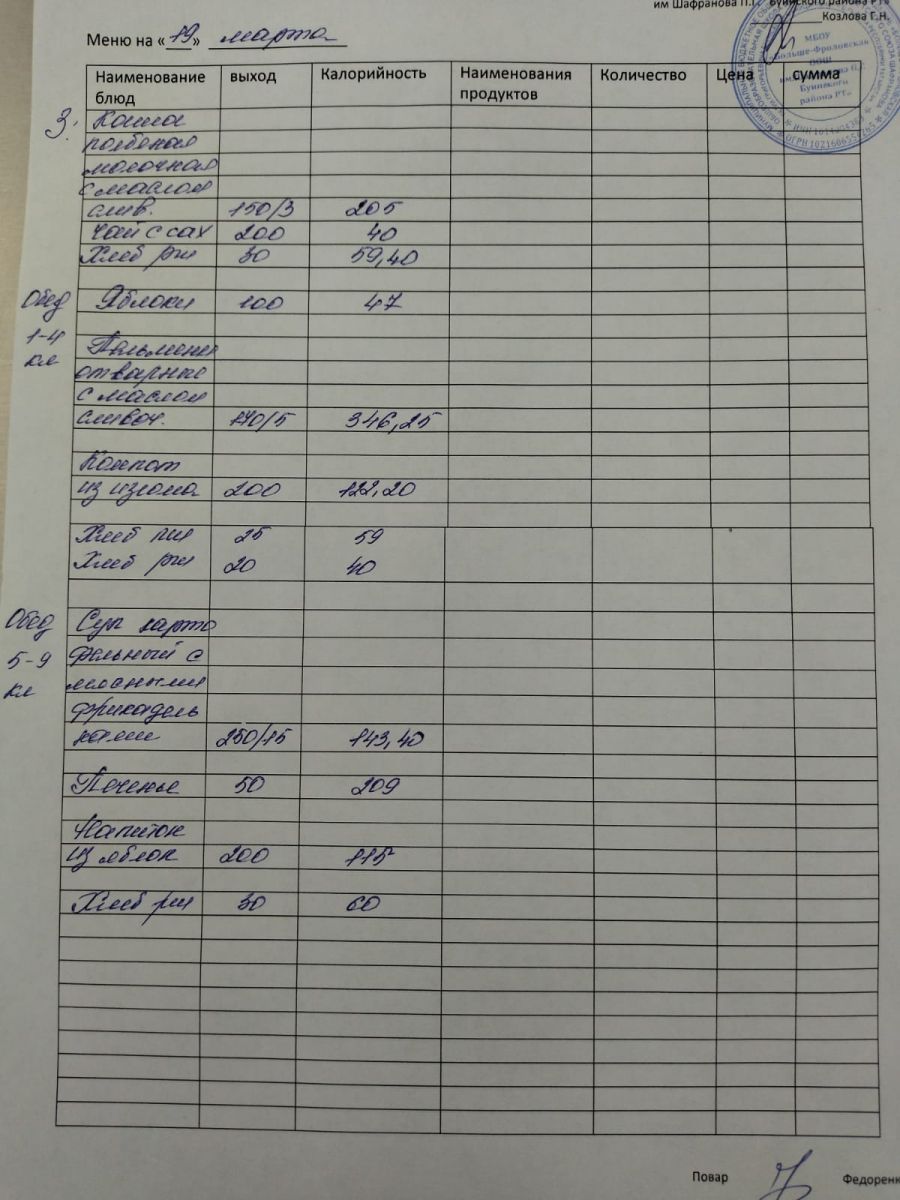 им Шафранова П.Г. Буинского района РТ»
Козлова Г.Н.
Меню на «19» марта
Наименование блюд выход Калорийность Наименования продуктов Количество Цена сумма
МБОУ
Больше-Фроловская
ООШ
Буинского
района РТ»
З. Каша
молочная
с маслом
слив. 150/3 205
Чай с сах 200 40
Хлеб рж 30 59,40
Обед Яблоки 100 47
1-4
кл Пельмени
отварные
с маслом
сливоч. 170/5 346,25
Компот
из изюма 200 122,20
Хлеб пш 25 59
Хлеб рж 20 40
Обед Суп карто
5-9 фельный с
кл мясными
фрикадель
ками 250/15 143,40
Печенье 50 209
Напиток
из яблок 200 115
Хлеб рж 30 60
Повар Федоренк